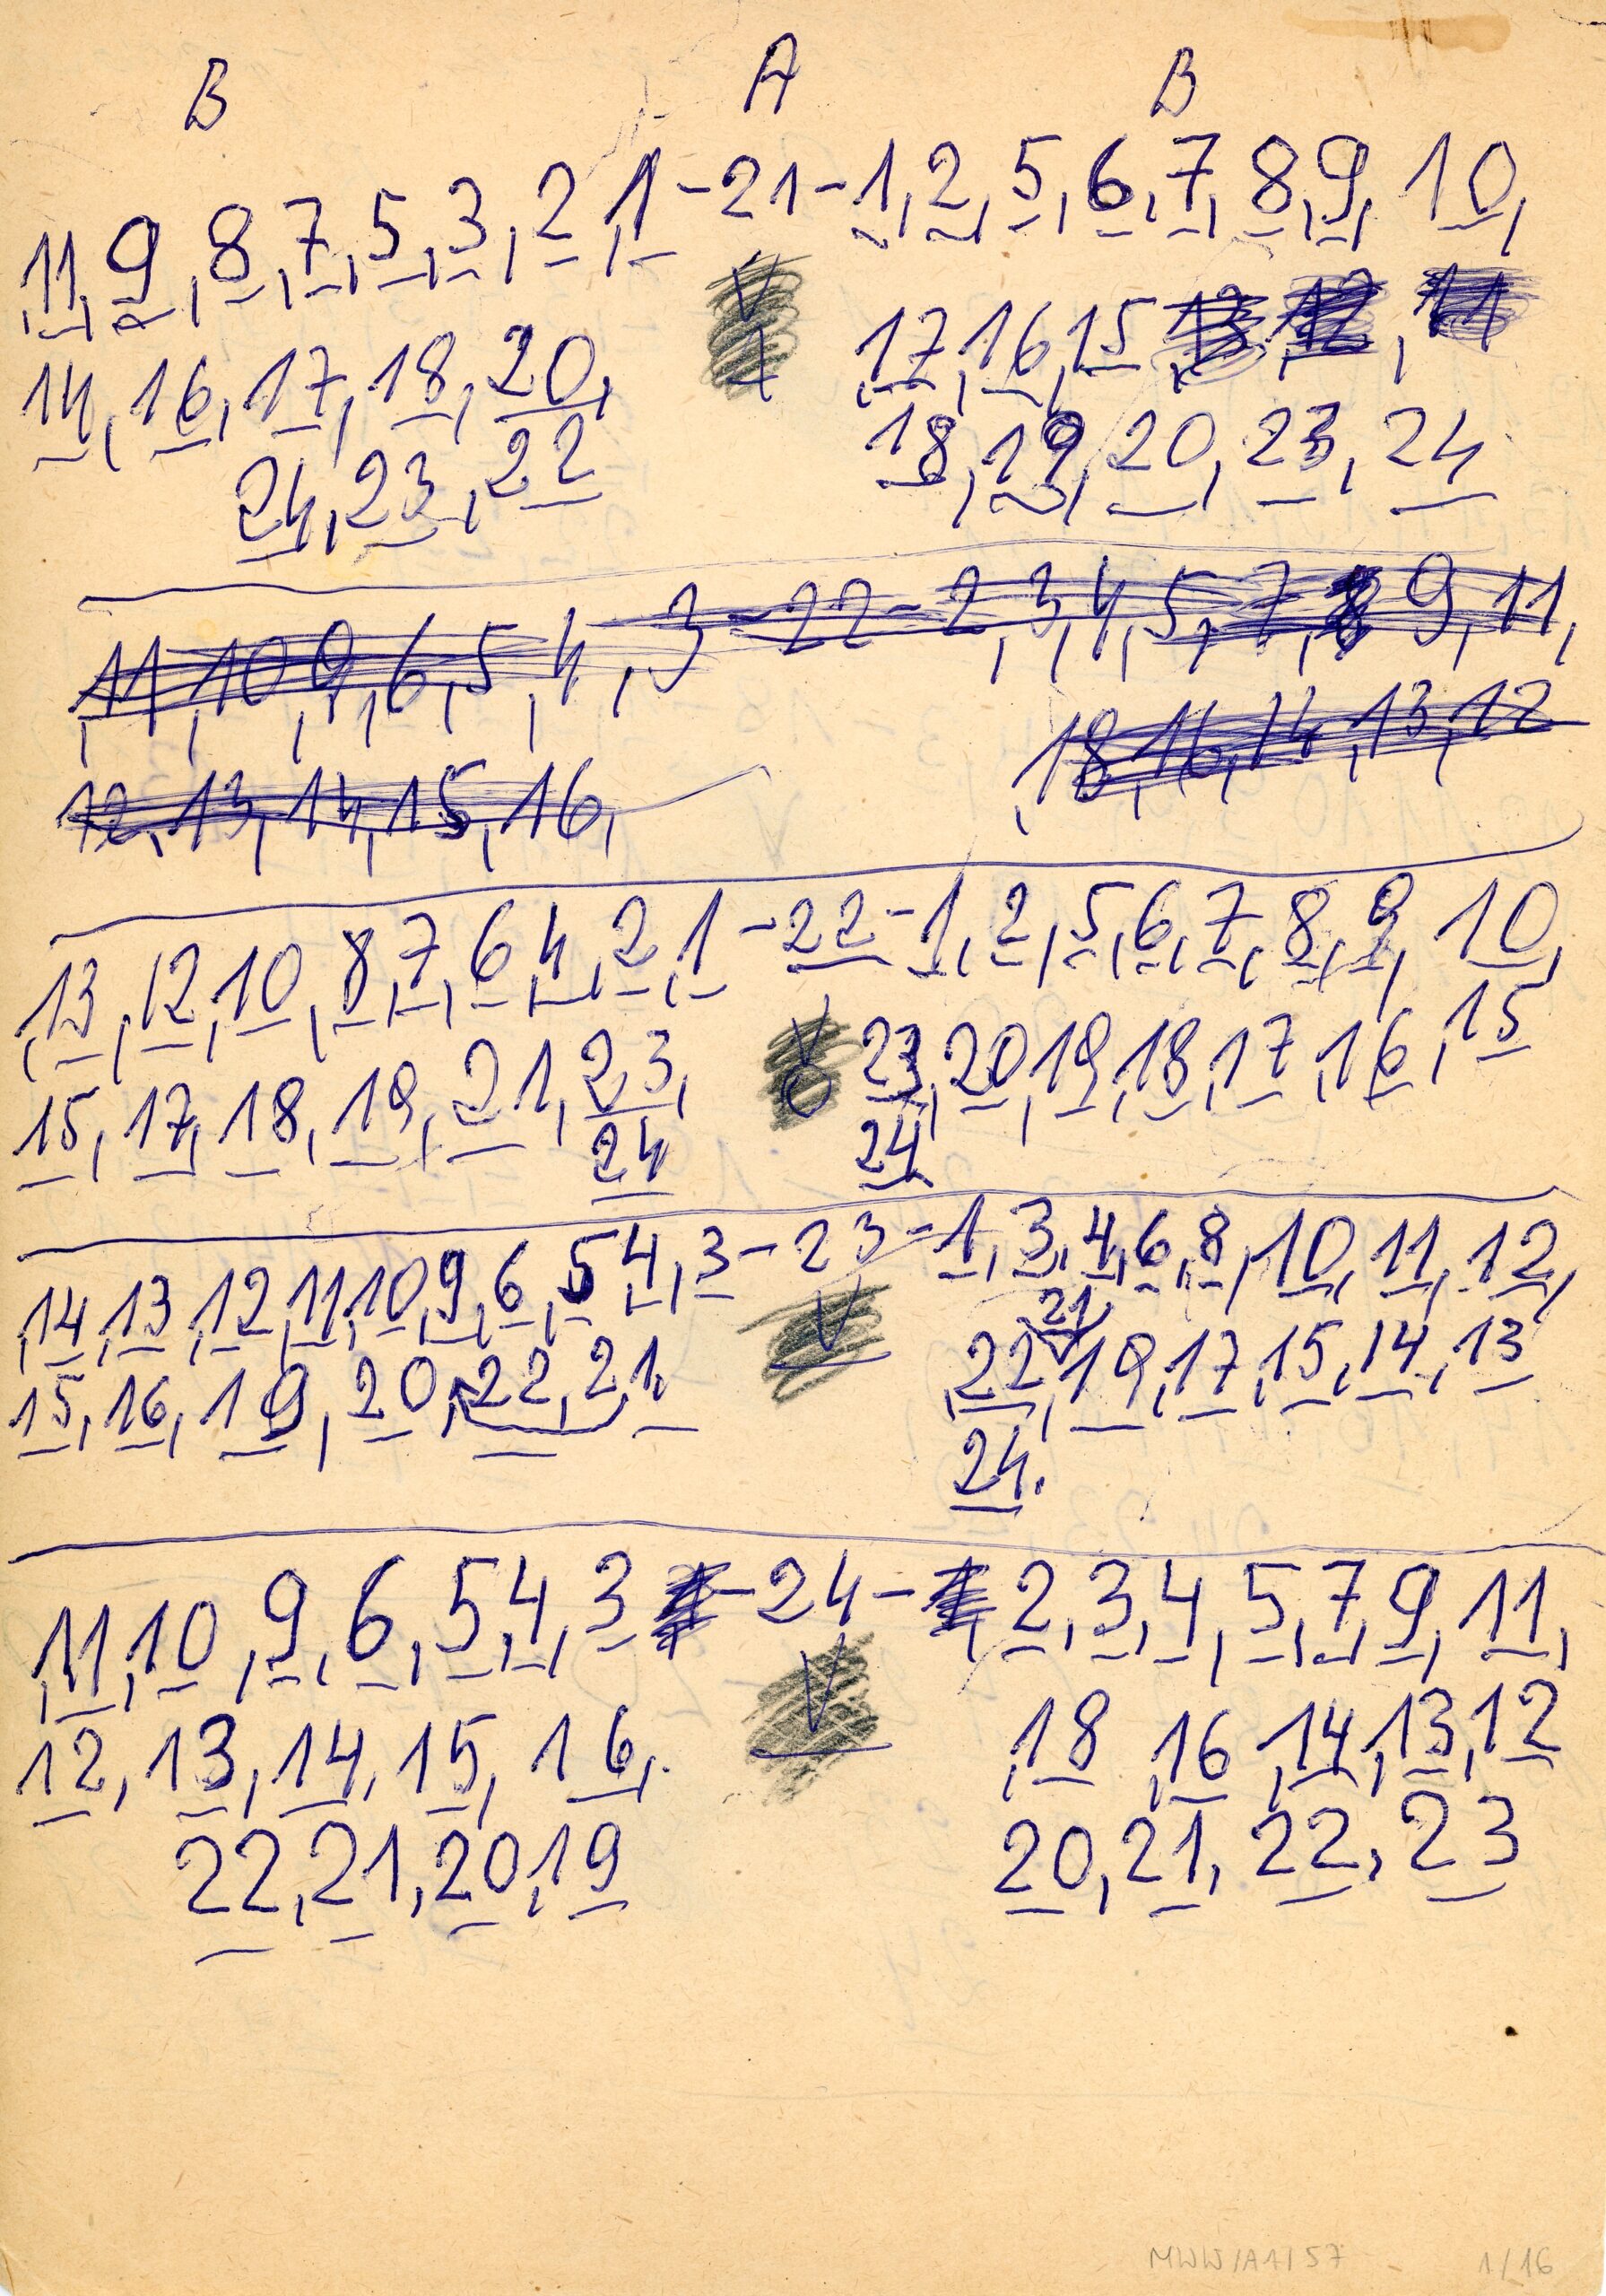 B A B
11, 9, 8, 7, 5, 3, 2, 1 - 21 - 1, 2, 5, 6, 7, 8, 9, 10,
14, 16, 17, 18, 20, 17, 16, 15, 13, 12, 11
24, 23, 22 18, 19, 20, 23, 24
11, 10, 9, 6, 5, 4, 3 - 22 - 2, 3, 4, 5, 7, 8 9, 11,
18, 16, 14, 13, 12
12, 13, 14, 15, 16,
13, 12, 10, 8, 7, 6, 4, 2, 1 - 22 - 1, 2, 5, 6, 7, 8, 9, 10,
15, 17, 18, 19, 21, 23, 23, 20, 19, 18, 17, 16, 15
24 24
14, 13, 12, 11, 10, 9, 6, 5 4, 3 - 23 - 1, 3, 4, 6, 8, 10, 11, 12,
21,
15, 16, 19, 20, 22, 21, 22 19, 17, 15, 14, 13
24.
11, 10, 9, 6, 5, 4, 3 - 24 - 2, 3, 4, 5, 7, 9, 11,
12, 13, 14, 15, 16, 18 16, 14, 13, 12
22, 21, 20, 19 20, 21, 22, 23
MWW/A1/57 - 1/16